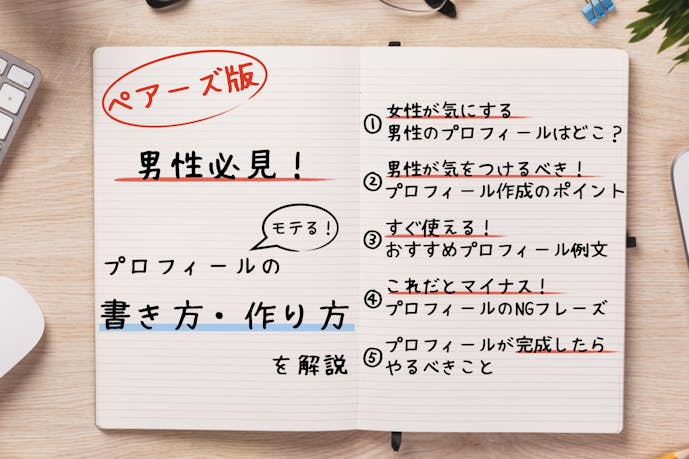 ペアーズ版
男性必見！
モテる！
プロフィールの
書き方・作り方
を解説
① 女性が気にする
男性のプロフィールはどこ？
② 男性が気をつけるべき！
プロフィール作成のポイント
③ すぐ使える！
おすすめプロフィール例文
④ これだとマイナス！
プロフィールのNGフレーズ
⑤ プロフィールが完成したら
やるべきこと